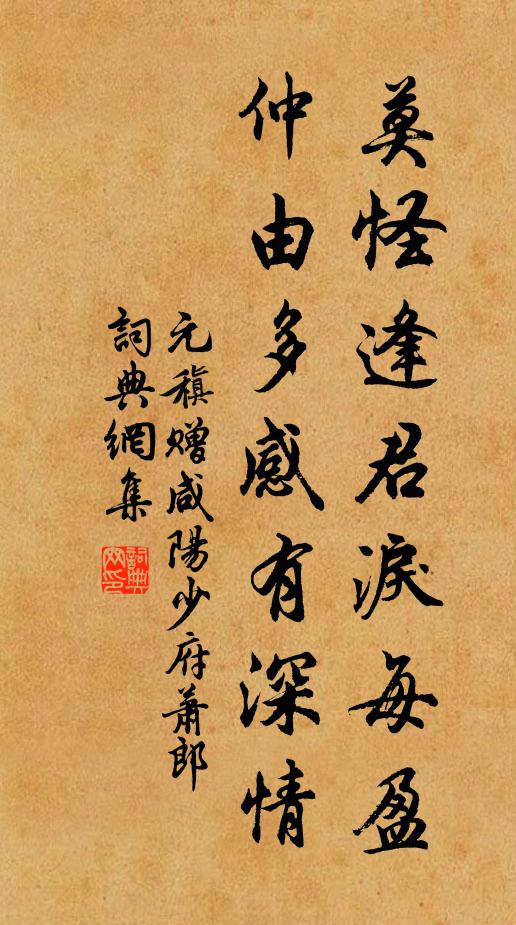 莫怪逢君淚每盈
仲由多感有深情
元稹赠咸陽少府萧郎
詞典網集
詞典網印